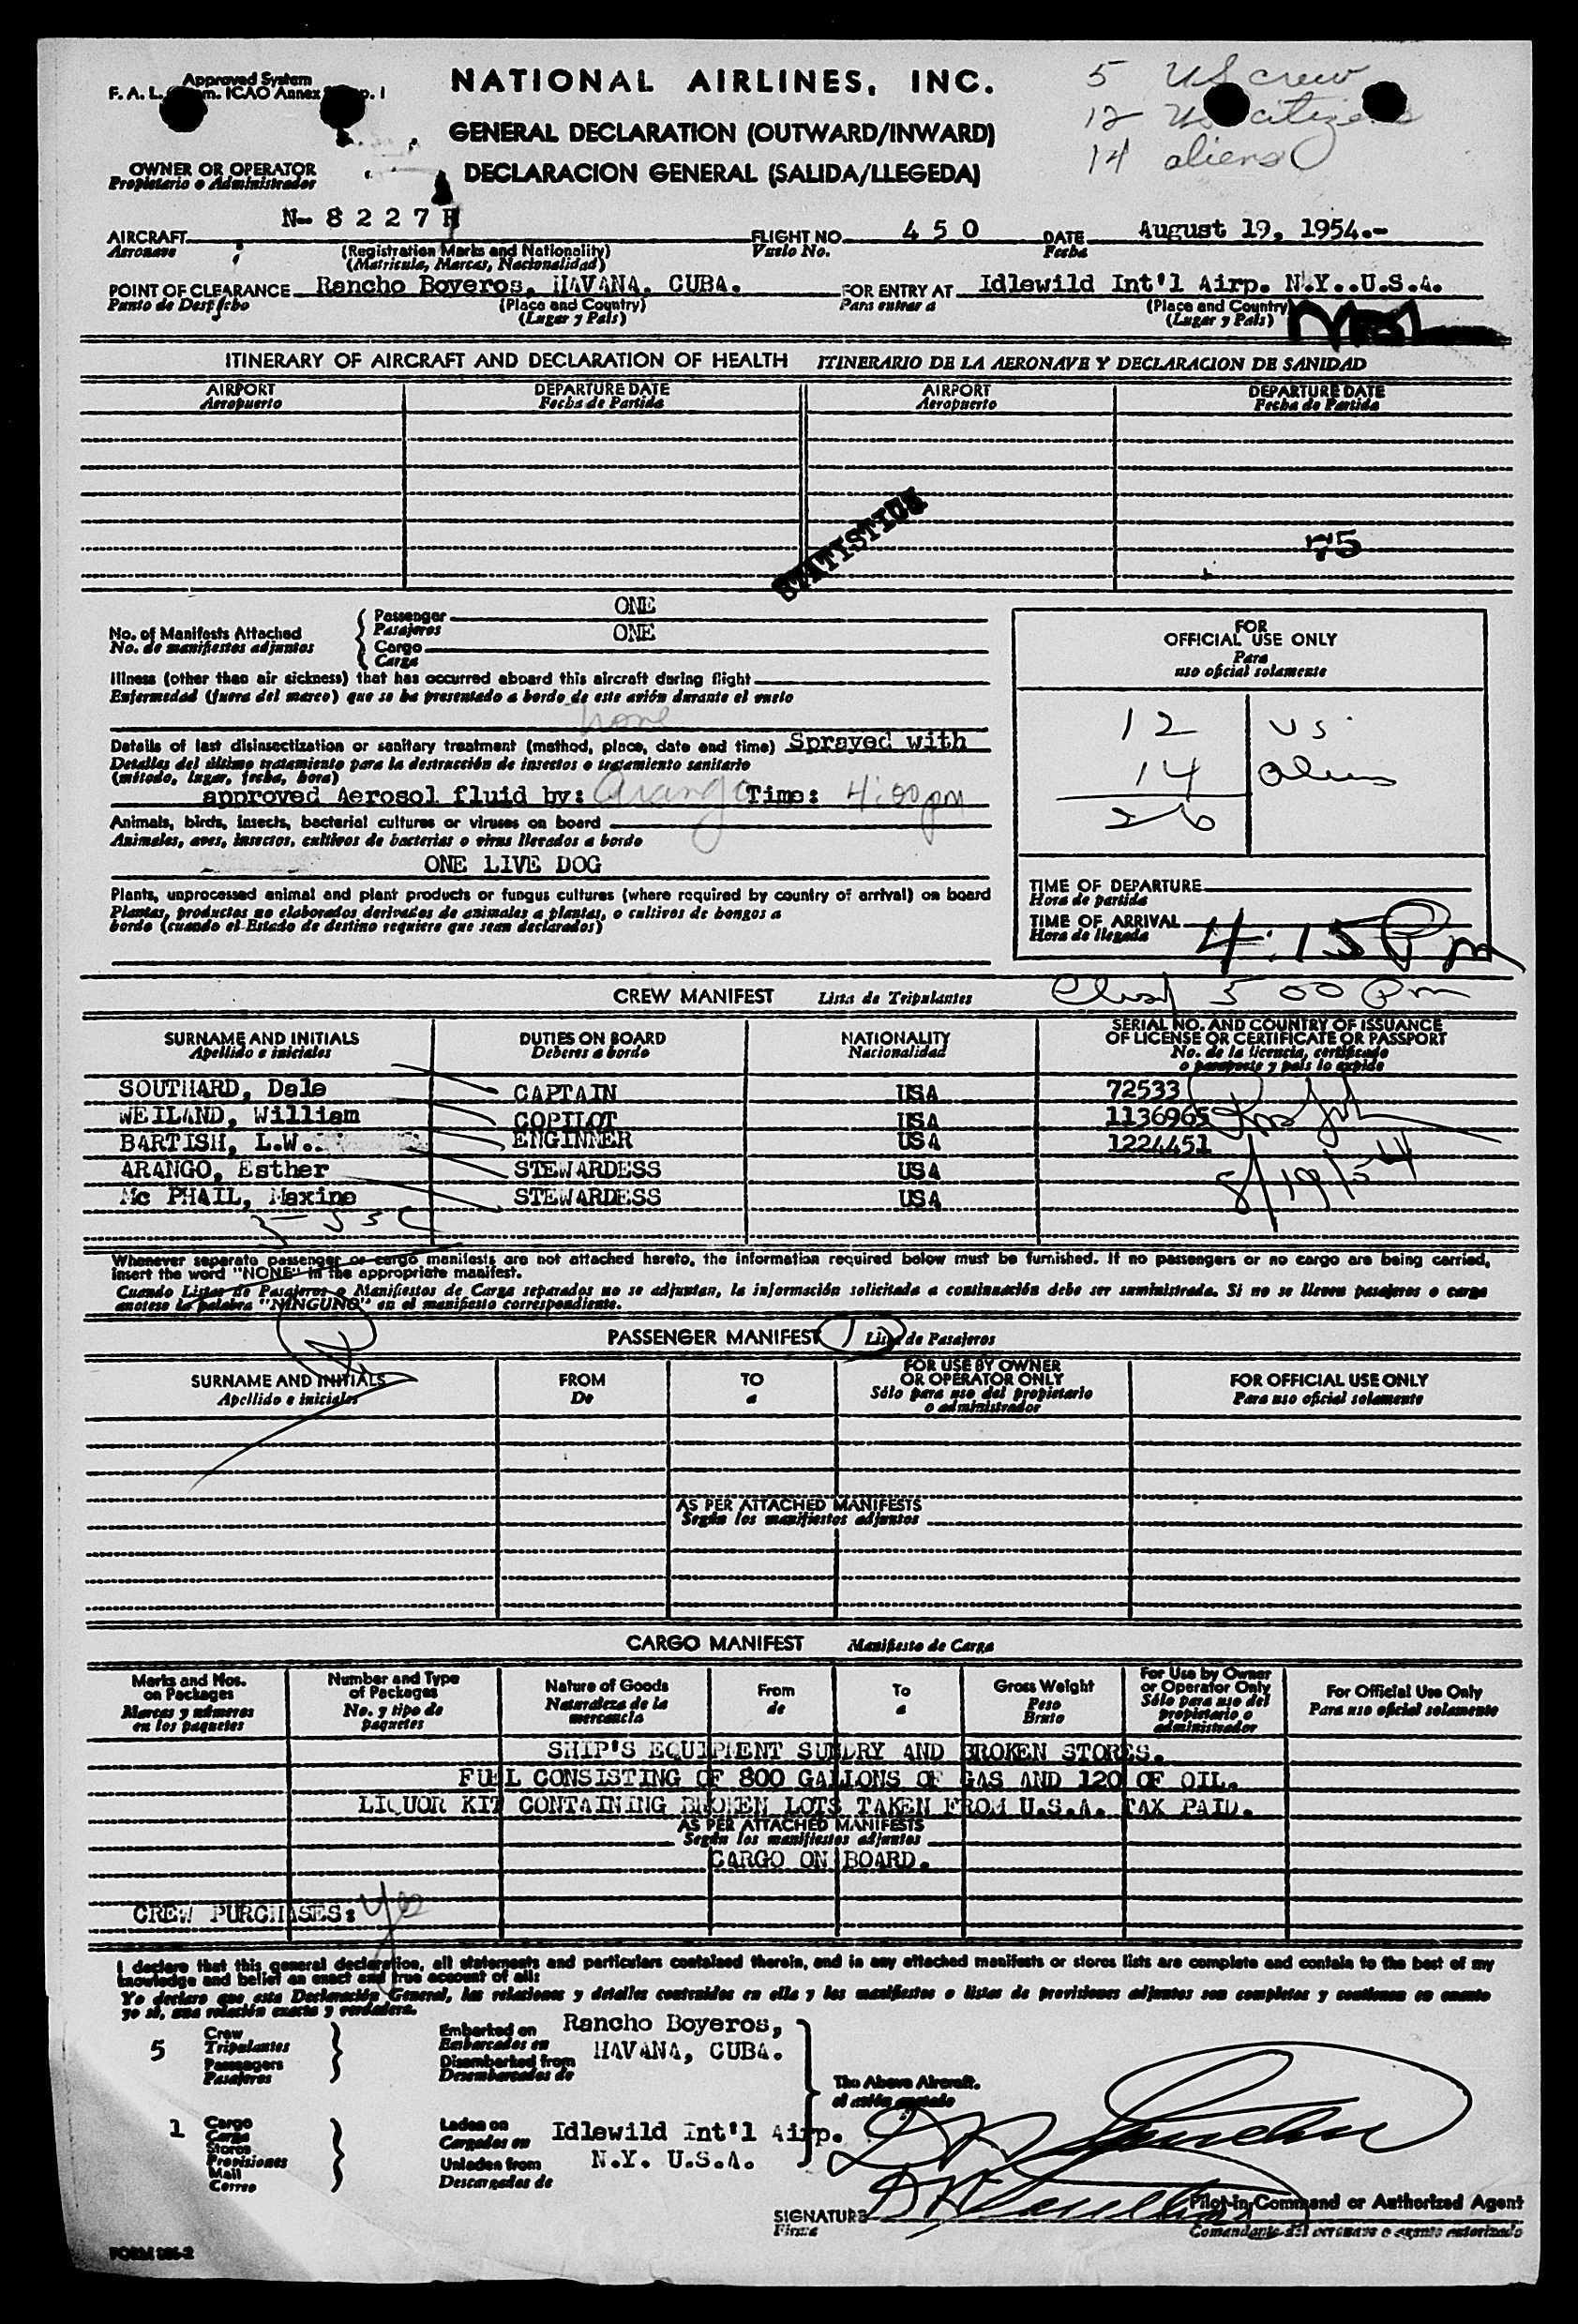 Approved System
F. A. L. m. ICAO Annex p. 1
NATIONAL AIRLINES, INC.
5 US crew
12 US citizens
14 aliens
GENERAL DECLARATION (OUTWARD/INWARD)
DECLARACION GENERAL (SALIDA/LLEGEDA)
OWNER OR OPERATOR
Propietario o Administrador
AIRCRAFT N- 8 2 2 7 H FLIGHT NO. 4 5 0 DATE August 19, 1954.-
Aeronave (Registration Marks and Nationality) Vuelo No. Fecha
(Matricula, Marcas, Nacionalidad)
POINT OF CLEARANCE Rancho Boyeros, HAVANA, CUBA. FOR ENTRY AT Idlewild Int'l Airp. N.Y..U.S.A.
Punto de Despacho (Place and Country) Para entrar a (Place and Country)
(Lugar y Pais) (Lugar y Pais)
ITINERARY OF AIRCRAFT AND DECLARATION OF HEALTH ITINERARIO DE LA AERONAVE Y DECLARACION DE SANIDAD
AIRPORT DEPARTURE DATE AIRPORT DEPARTURE DATE
Aeropuerto Fecha de Partida Aeropuerto Fecha de Partida
STATISTICS
75
No. of Manifests Attached
No. de manifiestos adjuntos
Passenger ONE
Pasajeros
Cargo ONE
Carga
Illness (other than air sickness) that has occurred aboard this aircraft during flight
Enfermedad (fuera del mareo) que se ha presentado a bordo de este avión durante el vuelo
none
Details of last disinsectization or sanitary treatment (method, place, date and time) Sprayed with
Detalles del último tratamiento para la destrucción de insectos o tratamiento sanitario
(método, lugar, fecha, hora)
approved Aerosol fluid by: Arango Time: 4:00 pm
Animals, birds, insects, bacterial cultures or viruses on board
Animales, aves, insectos, cultivos de bacterias o virus llevados a bordo
ONE LIVE DOG
Plants, unprocessed animal and plant products or fungus cultures (where required by country of arrival) on board
Plantas, productos no elaborados derivados de animales a plantas, o cultivos de hongos a
bordo (cuando el Estado de destino requiere que sean declarados)
FOR
OFFICIAL USE ONLY
Para
uso oficial solamente
12 US
14 aliens
26
TIME OF DEPARTURE
Hora de partida
TIME OF ARRIVAL 4:15 Pm
Hora de llegada
CREW MANIFEST Lista de Tripulantes
5 00 Pm
SURNAME AND INITIALS DUTIES ON BOARD NATIONALITY SERIAL NO. AND COUNTRY OF ISSUANCE
Apellido e iniciales Deberes a bordo Nacionalidad OF LICENSE OR CERTIFICATE OR PASSPORT
No. de la licencia, certificado
o pasaporte y pais lo expide
SOUTHARD, Dale CAPTAIN USA 72533
WEILAND, William COPILOT USA 1136965
BARTISH, L.W.. ENGINNER USA 1224451
ARANGO, Esther STEWARDESS USA
Mc PHAIL, Maxine STEWARDESS USA
8/19/54
5 - USC
Whenever separate passenger or cargo manifests are not attached hereto, the information required below must be furnished. If no passengers or no cargo are being carried,
insert the word "NONE" in the appropriate manifest.
Cuando Listas de Pasajeros o Manifiestos de Carga separados no se adjuntan, la información solicitada a continuación debe ser suministrada. Si no se lleven pasajeros o carga
anotese la palabra "NINGUNO" en el manifiesto correspondiente.
PASSENGER MANIFEST 1 Lista de Pasajeros
SURNAME AND INITIALS FROM TO FOR USE BY OWNER OR OPERATOR ONLY FOR OFFICIAL USE ONLY
Apellido e iniciales De a Sólo para uso del propietario o administrador Para uso oficial solamente
AS PER ATTACHED MANIFESTS
Según los manifiestos adjuntos
CARGO MANIFEST Manifiesto de Carga
Marks and Nos. on Packages Number and Type of Packages Nature of Goods From To Gross Weight For Use by Owner or Operator Only For Official Use Only
Marcas y números en los paquetes No. y tipo de paquetes Naturaleza de la mercancia de a Peso Bruto Sólo para uso del propietario o administrador Para uso oficial solamente
SHIP'S EQUIPMENT SUNDRY AND BROKEN STORES.
FUEL CONSISTING OF 800 GALLONS OF GAS AND 120 OF OIL.
LIQUOR KIT CONTAINING BROKEN LOTS TAKEN FROM U.S.A. TAX PAID.
AS PER ATTACHED MANIFESTS
Según los manifiestos adjuntos
CARGO ON BOARD.
CREW PURCHASES: Yes
I declare that this general declaration, all statements and particulars contained therein, and in any attached manifests or stores lists are complete and contain to the best of my
knowledge and belief an exact and true account of all:
Yo declaro que esta Declaración General, las relaciones y detalles contenidos en ella y los manifiestos o listas de provisiones adjuntos son completos y contienen en cuanto
yo sé, una relación exacta y verdadera.
5 Crew Tripulantes Passengers Pasajeros
Embarked on Rancho Boyeros,
Embarcados en HAVANA, CUBA.
Disembarked from
Desembarcados de
The Above Aircraft.
el avión anotado
1 Cargo Carga Stores Provisiones Mail Correo
Laden on Idlewild Int'l Airp.
Cargados en
Unladen from N.Y. U.S.A.
Descargados de
SIGNATURE Pilot-in-Command or Authorized Agent
Firma Comandante del aeronave o agente autorizado
FORM 286-2